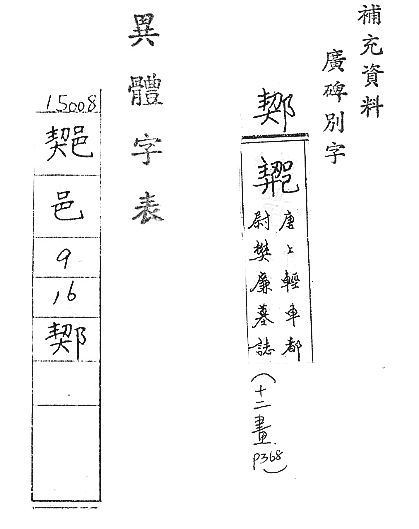 補充資料
廣碑別字
唐上輕車都
尉樊廉墓誌
(十二畫
P368)
異體字表
15008
邑
9
16